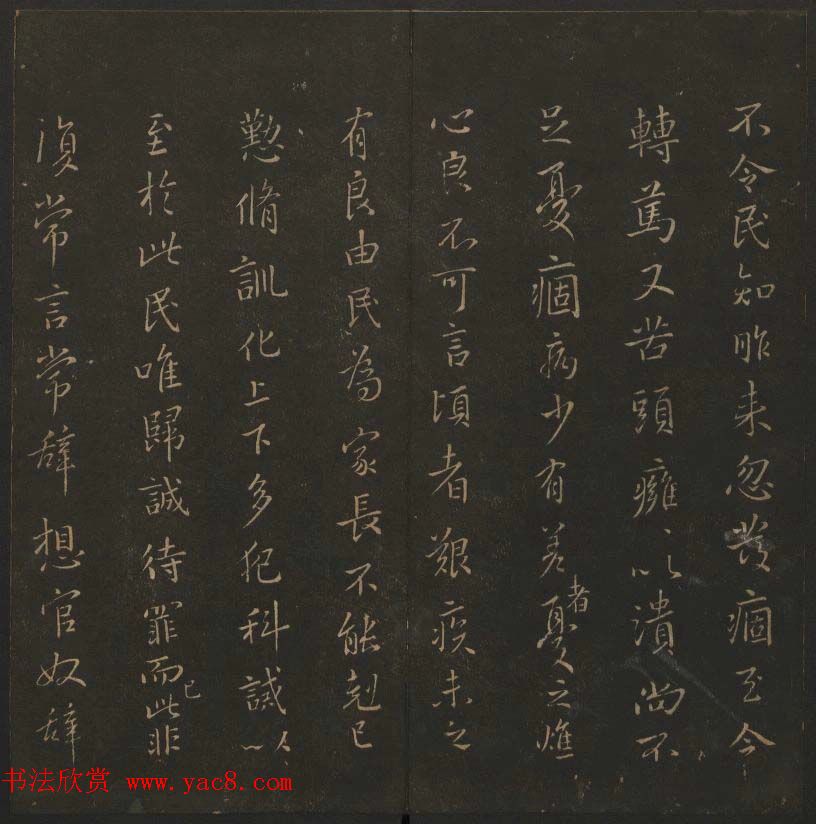 不令民知昨来忽發痼至今
轉篤又苦頭癰以潰尚不
足憂痼病少有差者憂之燋
心良不可言頃者艱疾未之
有良由民為家長不能剋已
懃脩訓化上下多犯科誡以
至於此民唯歸誠待罪而已此非
復常言常辭想官奴辭
书法欣赏 www.yac8.com